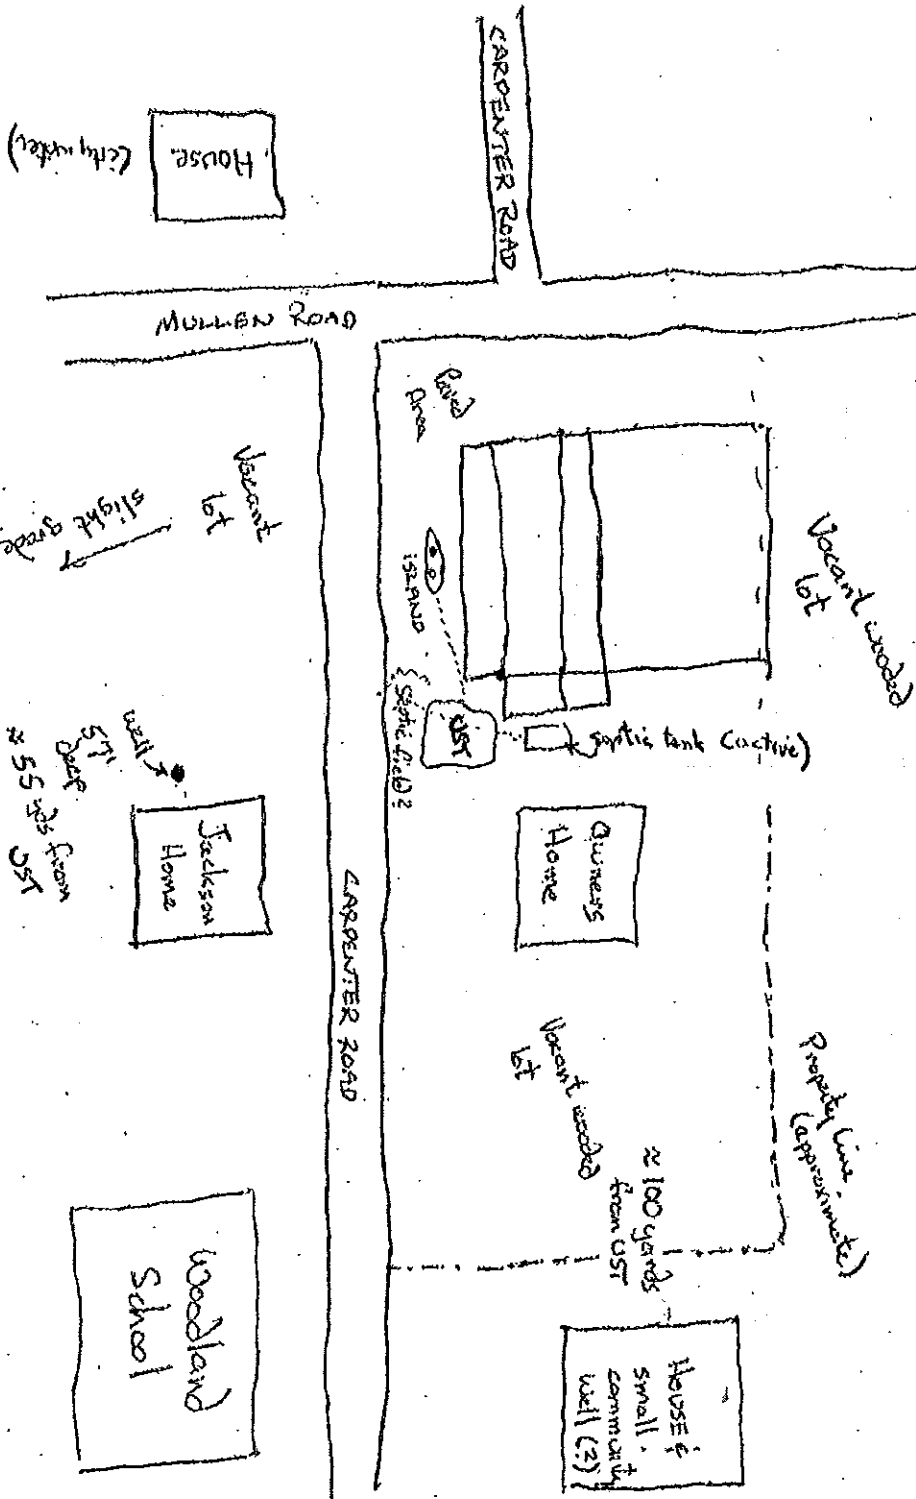 CARPENTER ROAD
House
(city water)
MULLEN ROAD
Paved
Area
Vacant
lot
slight grade
ISLAND
Vacant wooded
lot
UST
septic field?
septic tank (active)
well
57'
deep
≈ 55 yds from
UST
Jackson
Home
Owners
Home
CARPENTER ROAD
Vacant wooded
lot
Property Line
(approximate)
≈ 100 yards
from UST
Woodland
School
HOUSE &
small
community
well (?)